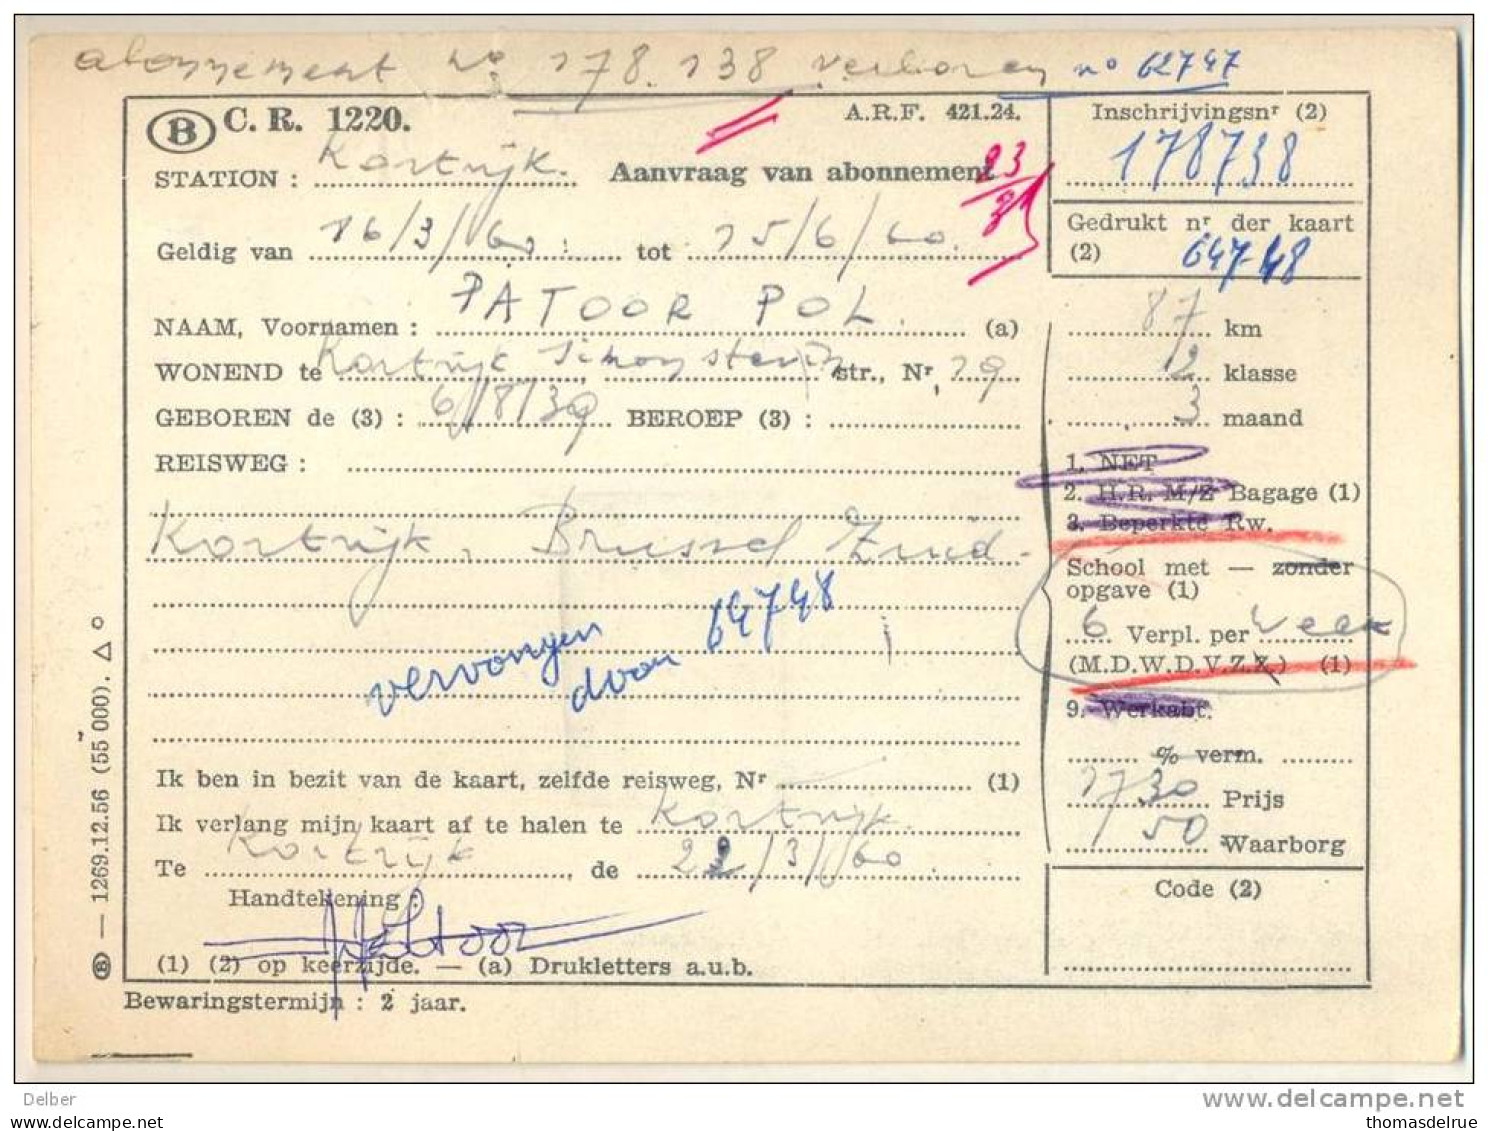 abonnement no 178.738 verloren no 62747
B C. R. 1220.
A.R.F. 421.24.
Inschrijvingsnr (2)
178738
STATION : Kortrijk.
Aanvraag van abonnement
23/3
Gedrukt nr der kaart
(2) 64748
Geldig van 16/3/60. tot 15/6/60.
NAAM, Voornamen : PATOOR POL. (a)
87 km
WONEND te Kortrijk, Simon Stevin str., Nr, 19
2 klasse
GEBOREN de (3) : 6/8/39 BEROEP (3) :
3 maand
REISWEG :
1. NET
2. H.R. M/Z Bagage (1)
3. Beperkte Rw.
Kortrijk. Brussel Zuid.
School met — zonder
opgave (1)
6 Verpl. per week
(M.D.W.D.V.Z.Z.) (1)
vervangen
door 64748
9. Werkabt.
% verm.
Ik ben in bezit van de kaart, zelfde reisweg, Nr (1)
1730 Prijs
Ik verlang mijn kaart af te halen te Kortrijk.
50 Waarborg
Te Kortrijk, de 22/3/60
Code (2)
Handtekening :
(1) (2) op keerzijde. — (a) Drukletters a.u.b.
Bewaringstermijn : 2 jaar.
B — 1269.12.56 (55 000).
Delber
delcampe.net
www.delcampe.net
thomasdelrue